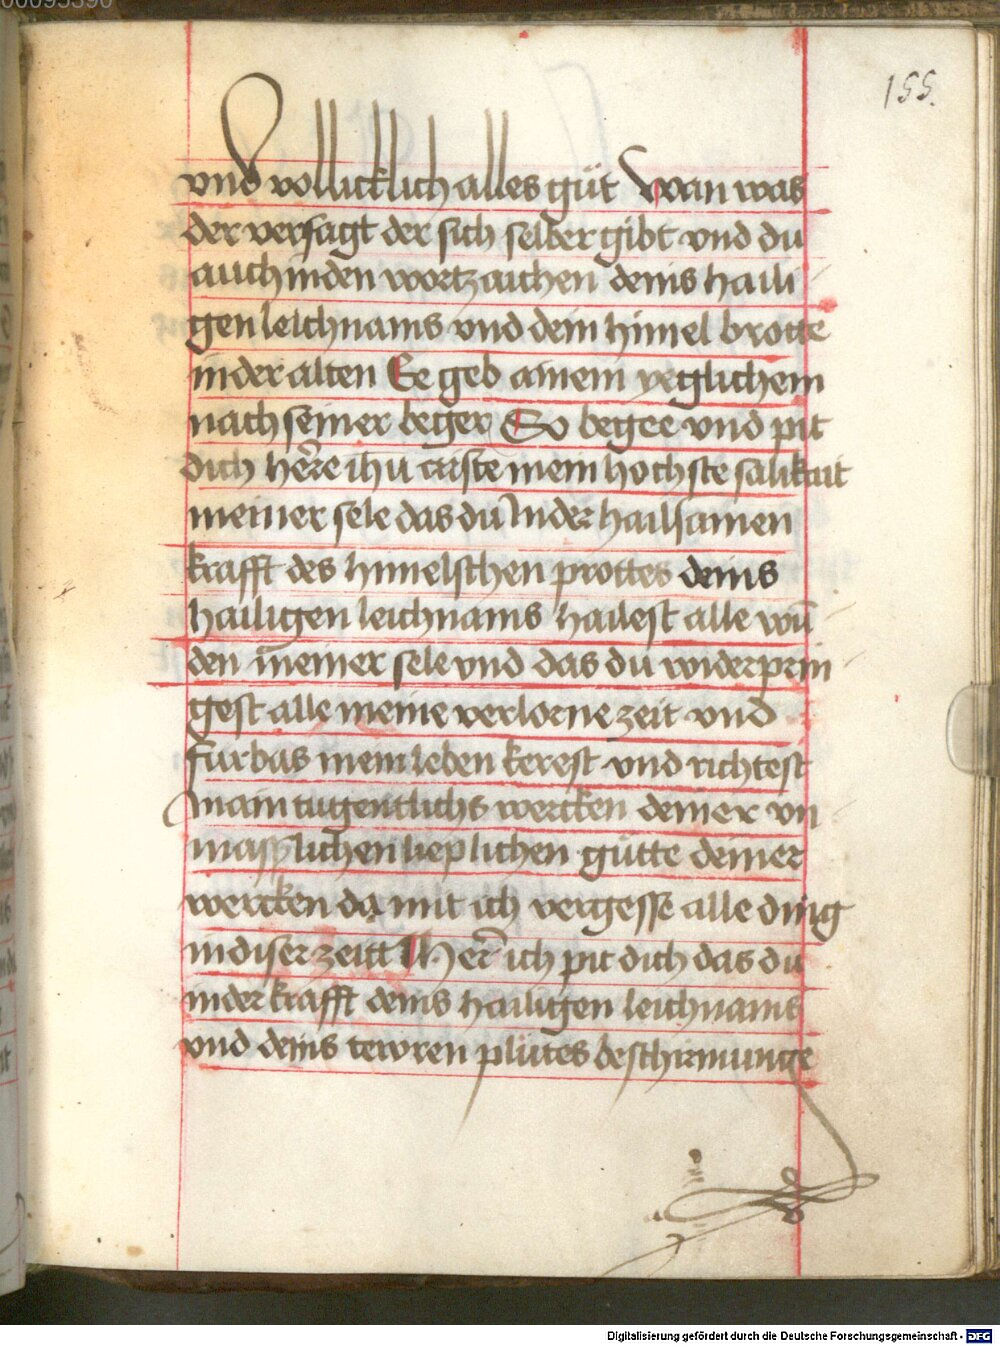 00095390
155.
vnd vollicklich alles güt Wan was
der versagt der sich selber gibt vnd du
auch in den wortzaichen deins haili
gen leichnams vnd dem himel brotte
in der alten Ee geb ainem yeglichem
nach seiner beger So beger vnd pit
dich here ihu criste mein hochste salikait
meiner sele das du In der hailsamen
krafft des himelschen prottes deins
hailigen leichnams hailest alle wū
den meiner sele vnd das du widerprin
gest alle meine verlorne zeit vnd
furbas mein leben kerest vnd richtest
main tugentlichs wercken deiner vn
maszlichen lieplichen gütte deiner
wercken da mit ich vergesse alle ding
in diser zeitt Her ich pit dich das du
in der krafft deins hailigen leichnams
vnd deins tewren plutes beschirmunge
Digitalisierung gefördert durch die Deutsche Forschungsgemeinschaft - DFG